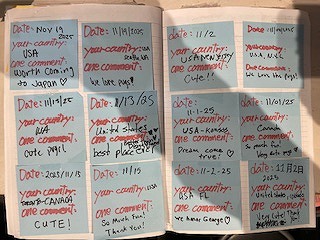 Date: Nov 19
2025
your country:
USA
one comment:
Worth coming
to Japan ♡
Date: 11/19/2025
your country: USA
one comment:
We love pugs!
Date: 11/2
your country:
USA
one comment:
Cute!!
Date:
your country:
USA
one comment:
We love the pugs!
Date: 11/13/25
your country:
USA
one comment:
cute pugs!
Date: 11/13/25
your country:
United States
one comment:
best place ever!
Date:
11-1-25
your country:
USA - Kansas
one comment:
Dream come
true! ♡
Date: 11/01/25
your country:
Canada
one comment:
So much fun!
Date: 2025/11/15
your country:
CANADA
one comment:
CUTE!
Date: 11/15
your country: USA
one comment:
So Much Fun!
Thank you!
Date: 11-2-25
your country:
USA FL
one comment:
We love George ♡
Date: 11月2日
2025
your country:
United States
one comment:
Very Cute! Thank